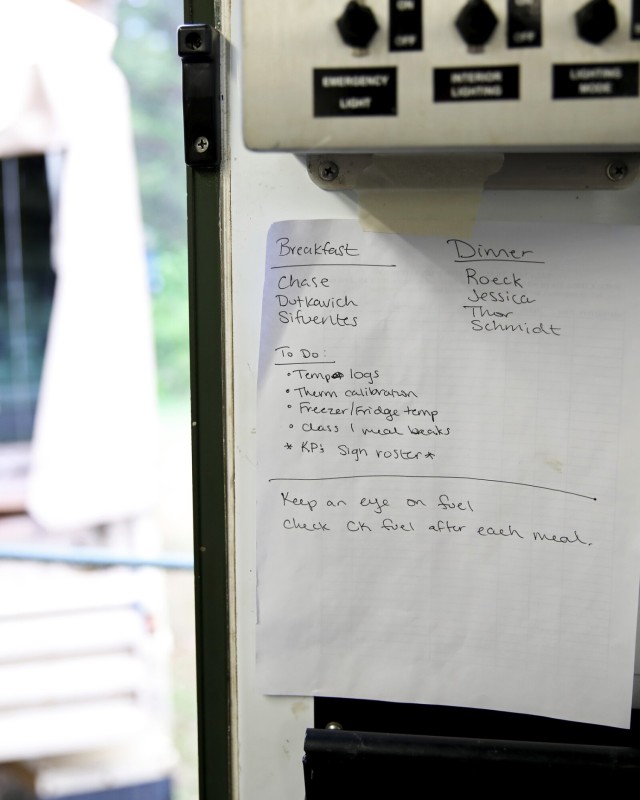 ON
OFF
ON
OFF
EMERGENCY
LIGHT
INTERIOR
LIGHTING
LIGHTING
MODE
Breakfast
Chase
Dutkavich
Sifuentes
Dinner
Roeck
Jessica
Thor
Schmidt
To Do:
• Temp logs
• Therm calibration
• Freezer/Fridge temp
• class 1 meal
* KPs Sign roster *
Keep an eye on fuel
check CK fuel after each meal.